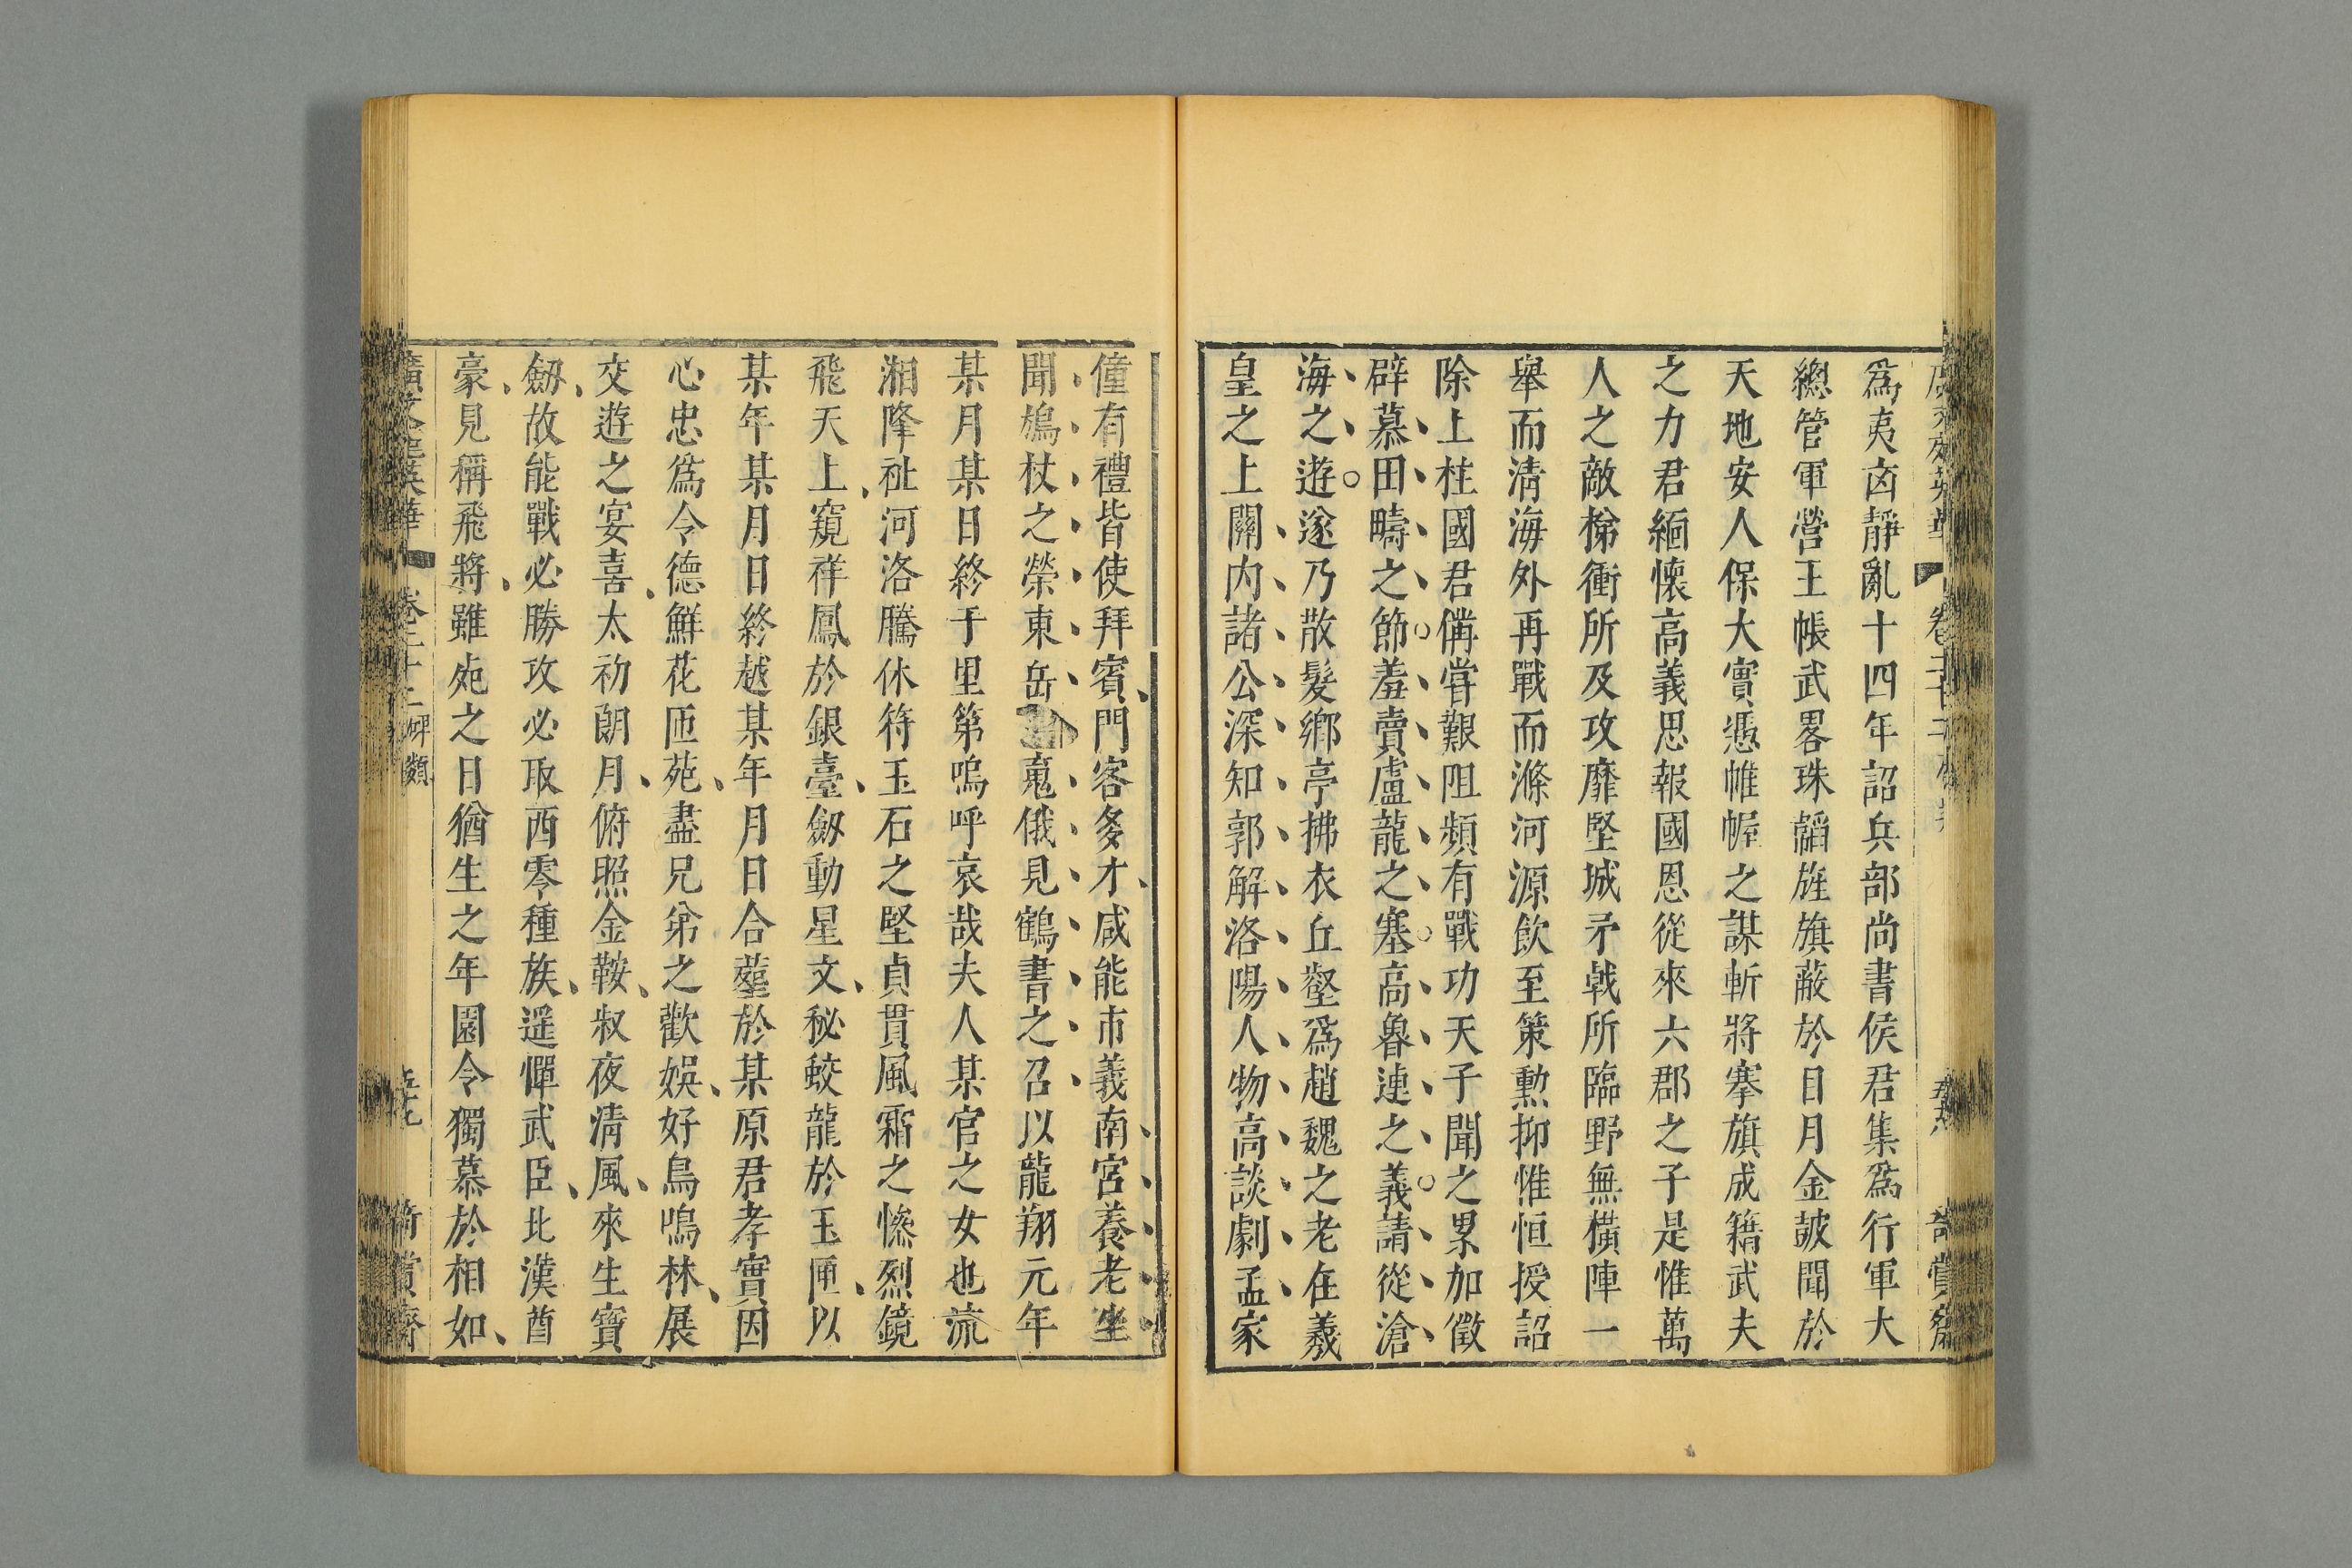 爲夷㐫靜亂十四年詔兵部尚書侯君集爲行軍大
總管軍營玉帳武畧珠韜旌旗蔽於日月金鼓聞於
天地安人保大實憑帷幄之謀斬將搴旗成籍武夫
之力君緬懷高義思報國恩從來六郡之子是惟萬
人之敵梯衝所及攻靡堅城矛戟所臨野無橫陣一
舉而淸海外再戰而滌河源飲至策勲抑惟恒授詔
除上柱國君備甞艱阻頻有戰功天子聞之累加徵
辟慕田疇之節羞賣盧龍之塞高魯連之義請從滄
海之遊遂乃散髮鄉亭拂衣丘壑爲趙魏之老在羲
皇之上關內諸公深知郭解洛陽人物高談劇孟家
僮有禮皆使拜賓門客多才咸能市義南宮養老坐
聞鳩杖之榮東岳遊䰟俄見鶴書之召以龍翔元年
某月某日終于里第嗚呼哀哉夫人某官之女也流
湘降祉河洛騰休符玉石之堅貞貫風霜之慘烈鏡
飛天上窺祥鳳於銀臺劒動星文秘蛟龍於玉匣以
某年某月日終越某年月日合葬於某原君孝實因
心忠爲令德鮮花匝苑盡兄弟之歡娛好鳥鳴林展
交遊之宴喜太初朗月俯照金鞍叔夜淸風來生寶
劒故能戰必勝攻必取西零種族遥憚武臣北漢酋
豪見稱飛將雖𠧧之日猶生之年園令獨慕於相如
廣文選英華 卷二十二 碑類 奇賞齋